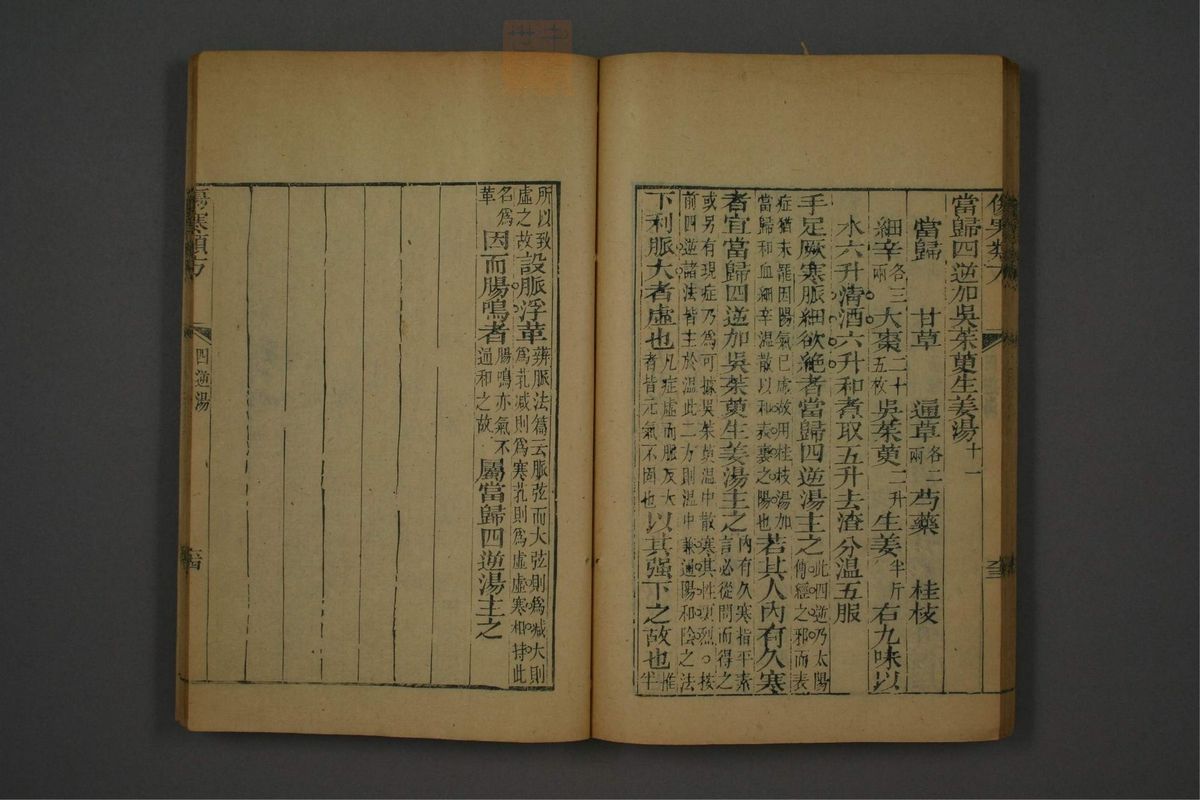 當歸四逆加吳茱萸生姜湯十一
當歸 甘草 通草各二兩 芍藥 桂枝
細辛各三兩 大棗二十五枚 吳茱萸二升 生姜半斤 右九味以
水六升清酒六升和煮取五升去渣分溫五服
手足厥寒脈細欲絕者當歸四逆湯主之此四逆乃太陽傳經之邪而表
症猶未罷因陽氣已虛故用桂枝湯加當歸和血細辛溫散以和表裏之陽也若其人內有久寒
者宜當歸四逆加吳茱萸生姜湯主之內有久寒指平素言必從問而得之
或另有現症乃為可據吳茱萸溫中散寒其性更烈。按前四逆諸法皆主於溫此二方則溫中兼通陽和陰之法
下利脈大者虛也凡症虛而脈反大者皆元氣不固也以其强下之故也推半
所以致虛之故設脈浮革辨脈法篇云脈弦而大弦則為減大則為芤減則為寒芤則為虛虛寒相持此
名為革因而腸鳴者腸鳴亦氣不過和之故屬當歸四逆湯主之
傷寒類方
四逆湯